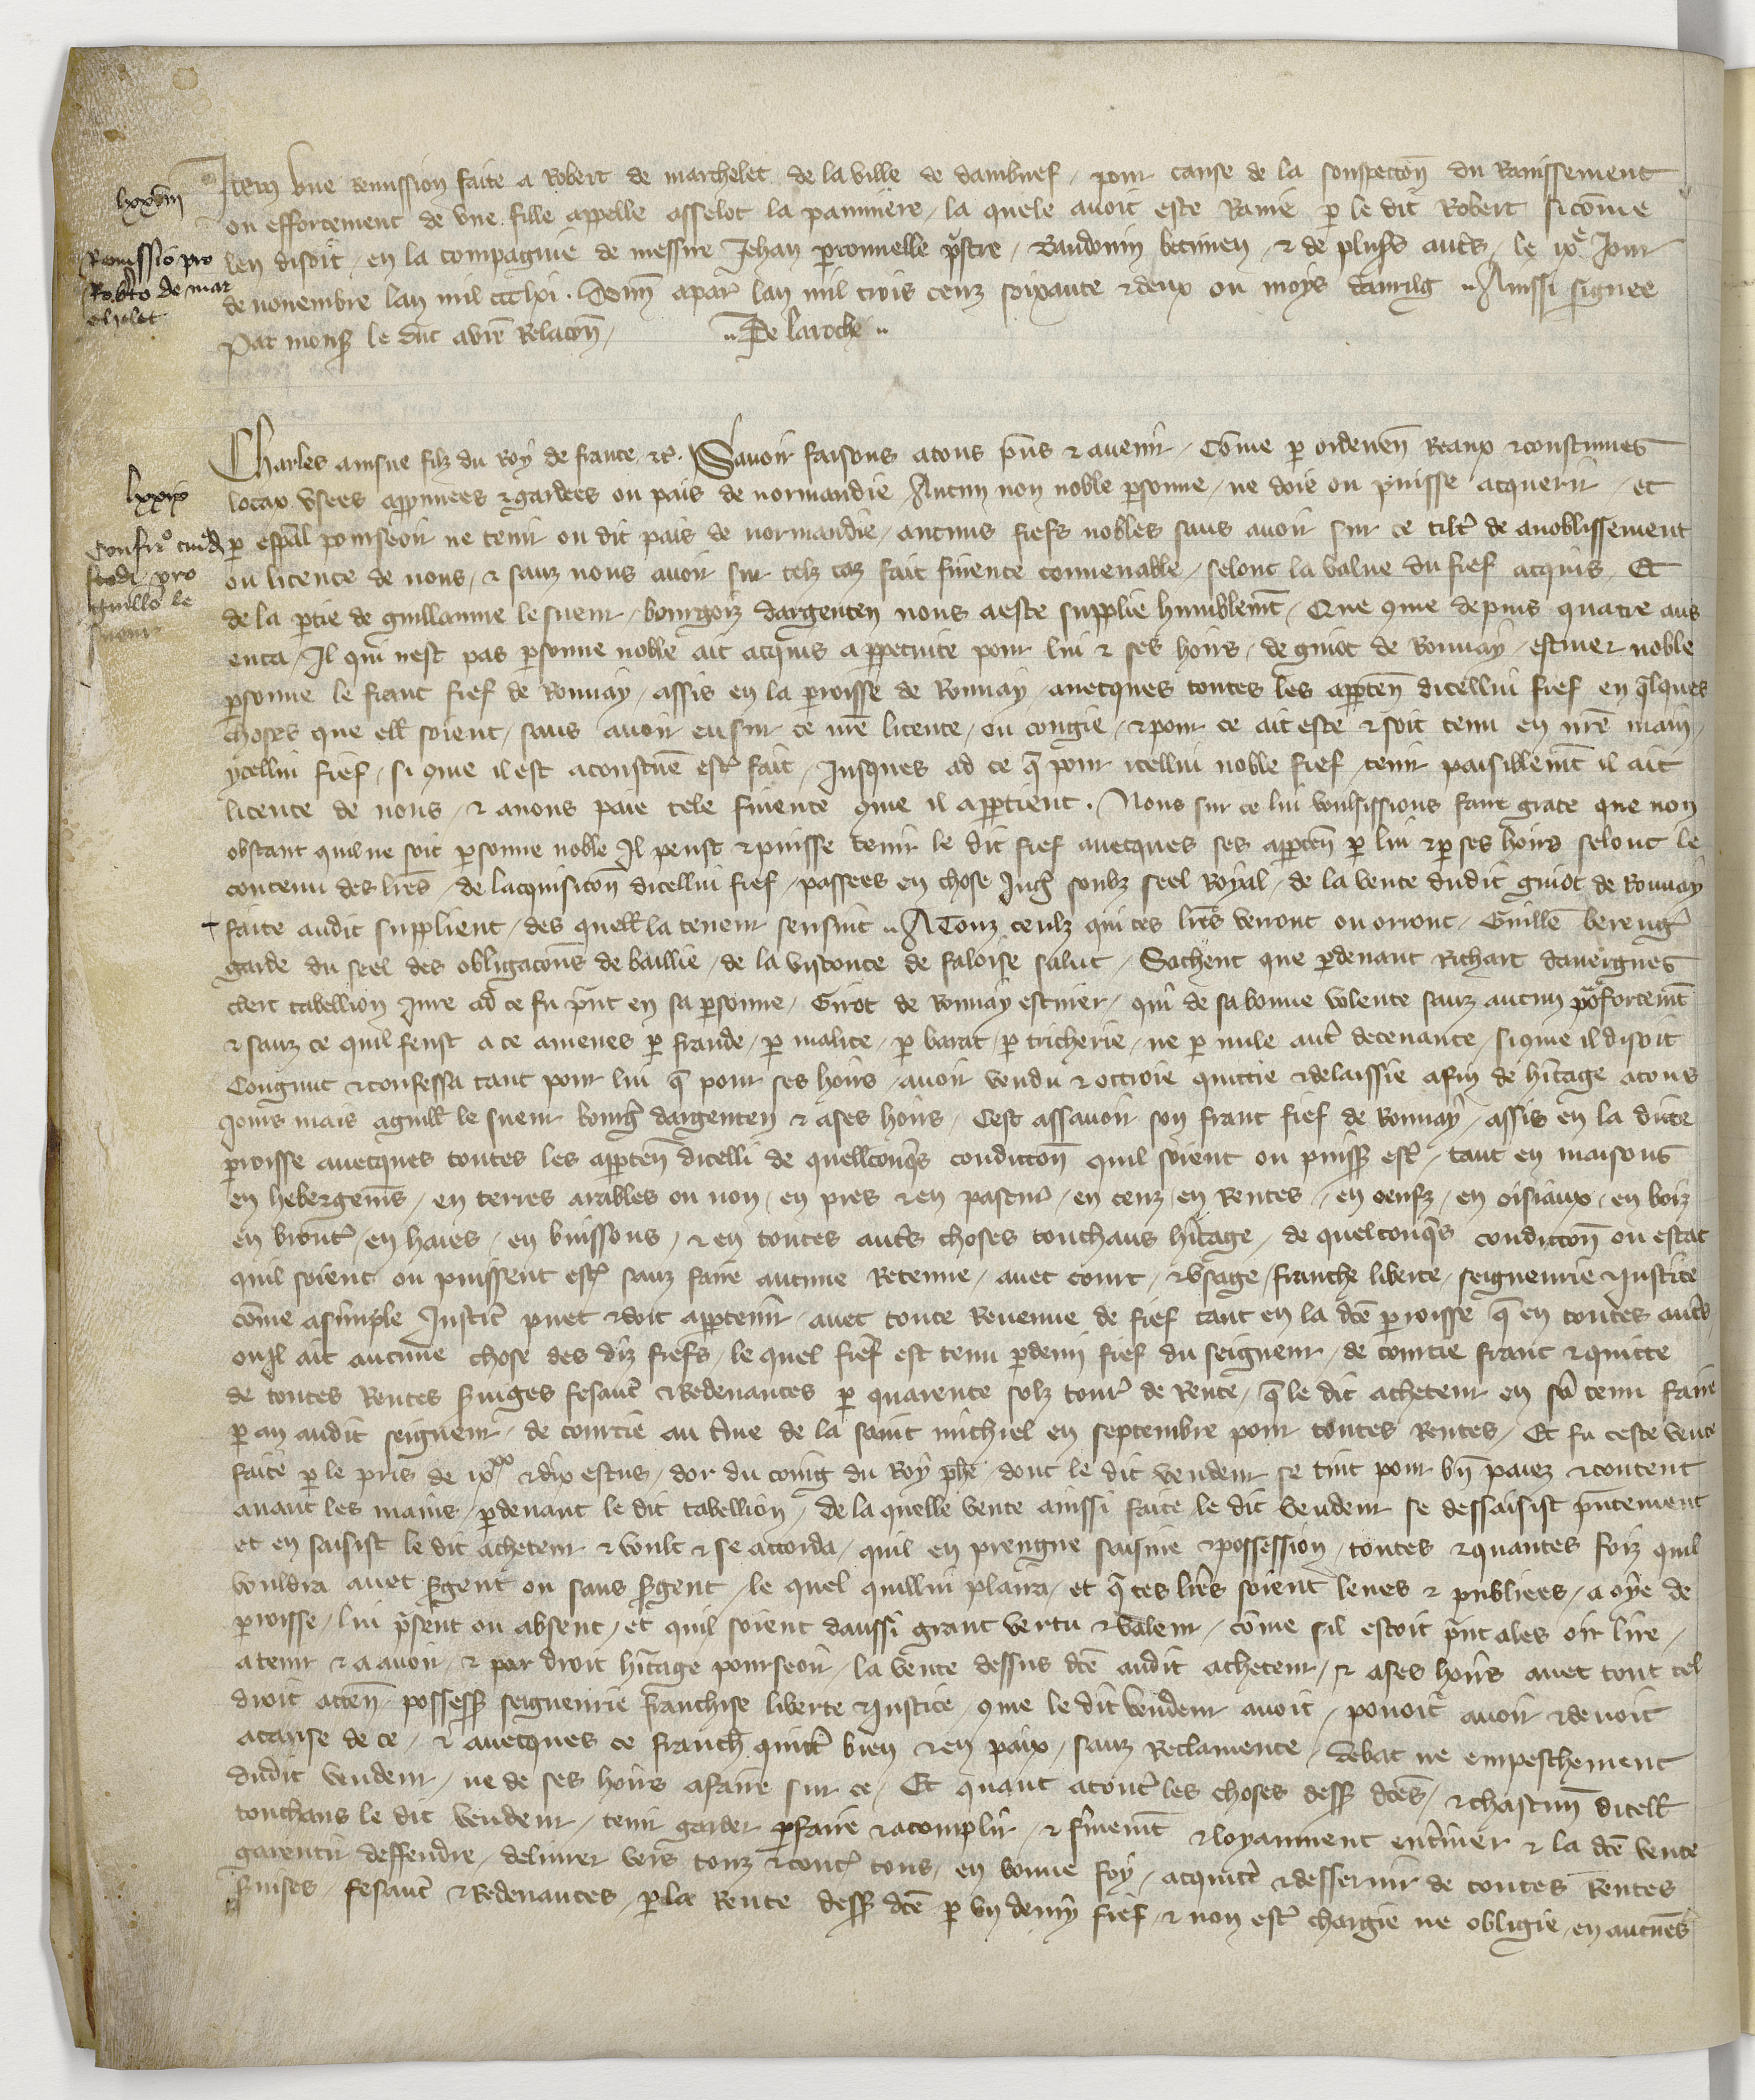 lxxviii
Remissio pro
Robto de mar
chelet
Item une remission faite a Robert de marchelet de la ville de dambuef / pour cause de la souspecton du Ravissement
ou efforcement de une fille appelle asselot la panniere / la quele avoit este Ravie p le dit Robert sicome
len disoit / en la compagnie de messire Jehan peronnelle pstre / Baudouin / & de plus auts / le ixe Jour
de novembre lan mil ccclxi . Donn a par lan mil trois cenz soixante & deux ou moys davril Ainssi signee
Par mons le duc a vre Relacon / De laroche
lxxix
Confir
feodi pro
Guillo le
sueur
Charles ainsne filz du Roy de france &c. Savoir faisons a tous pns & avenir / Come p ordenen Reaux & coustumes
locax usees approuvees & gardees ou pais de normandie Aucun non noble psonne / ne doie ou puisse acquerir / et
p espal pourseoir ne tenir ou dit pais de normandie / aucuns fiefs nobles sans avoir sur ce tiltr de anoblissement
ou licence de nous / & sanz nous avoir sur telz cas fait finence convenable / selonc la value du fief acquis Et
de la ptie de guillaume le sueur / bourgois dargenten nous a este supplie humblemt / Que come depuis quatre ans
enca / Il qui nest pas psonne noble ait acquis a ppetuite pour lui & ses hoirs / de guiot de Ronnay / escuier noble
psonne le franc fief de Ronnay / assis en la proisse de Ronnay / avecques toutes les appten dicellui fief en qlques
choses que ell soient / sans avoir eu sur ce nre licence / ou congie / & pour ce ait este & soit tenu en nre main /
ycellui fief / si que il est acoustume estr fait / Jusques ad ce q pour icellui noble fief / tenir paisiblemt il ait
licence de nous / & a nous paie tele finence que il apptient . Nous sur ce lui voulsissions faire grace que non
obstant quil ne soit psonne noble Il peust & puisse tenir le dit fief avecques ses appten p lui & p ses hoirs selonc le
contenu des lres / de lacquisicon dicellui fief / passees en chose Jug soubz seel Royal / de la vente dudit guiot de Ronnay
faite audit supplient / des quell la teneur sensuit A Touz ceulz qui ces lres verront ou orront / Guille bereng
garde du seel des obligacons de baillie / de la visconte de faloise salut / Sachent que pdevant Richart davergnes
clerc tabellion Jure ad ce fu pnt en sa psonne / Guiot de Ronnay escuier / qui de sa bonne volente sanz aucun pforcemt
& sanz ce quil feust a ce amenes p fraude / p malice / p barat / p tricherie / ne p nule autr decevance / si que il disoit
Congnut & confessa tant pour lui q pour ses hoirs / avoir vendu & ottroie quittie & delaissie a fin de hitage a tous
Jours mais a guill le sueur bourg dargenten & a ses hoirs / Cest assavoir son franc fief de Ronnay / assis en la dite
proisse avecques toutes les appten dicelli de quellconqs condicion quil soient ou puiss estr / tant en maisons
en hebergems / en terres arables ou non / en pres & en pastur / en cenz / en Rentes / en oeufz / en oisiaux / en boiz
en / en haies / en buissons / & en toutes auts choses touchans hitage / de quelconqs condicion ou estat
quil soient ou puissent estr sanz faire aucune Retenue / avec court / & usage / franche liberte / seigneurie & Justice
come a simple Justic puet & doit apptenir / avec toute Revenue de fief tant en la dce proisse q en toutes auts
ou Il ait aucune chose des diz fiefs / le quel fief est tenu p demi fief du seigneur / de courcie franc & quitte
de toutes Rentes svices fesanc & Redevances p quarente solz tour de Rente / q le dit acheteur en sa tenu faire
p an audit seigneur / de courcie au tme de la saint michiel en septembre pour toutes Rentes / Et fu ceste vente
faite p le pris de ixxx & dix escus / dor du coing du Roy phe / dont le dit vendeur se tint pour bn paiez & content
avant les mains / pdevant le dit tabellion / De la quelle vente ainssi faite le dit vendeur se dessaisist pntement
et en saisist le dit acheteur & voult & se accorda / quil en prengne saisine & possession / toutes & quantes foiz quil
vouldra avec sgent ou sans sgent / le quel quillui plaira / et q ces lres soient leues & publiees / a oye de
proisse / lui psent ou absent / et quil soient daussi grant vertu & valeur / come sil estoit pnt a les oir lire /
a tenir & a avoir / & par droit hitage pourseoir / la vente dessus dce audit acheteur / & a ses hoirs avec tout tel
droit accen possess seigneurie franchise liberte & Justice / que le dit vendeur avoit / povoit avoir & devoit
a cause de ce / & avecques ce franch quitt bien & en paix / sanz Reclamence / debat ne empeschement
dudit vendeur / ne de ses hoirs a faire sur ce / Et quant a toutes les choses dess dces / & chascun dicell
touchans le dit vendeur / tenir garder pfaire & acomplir / & fmemt & loyaument entinier & la dce vente
garentir deffendre / delivrer vers touz & contr tous / en bonne foy / acquitt & desservir de toutes Rentes
svises / fesanc & Redevances / p la Rente dess dce p un demy fief / & non estr chargie ne obligie / en aucunes